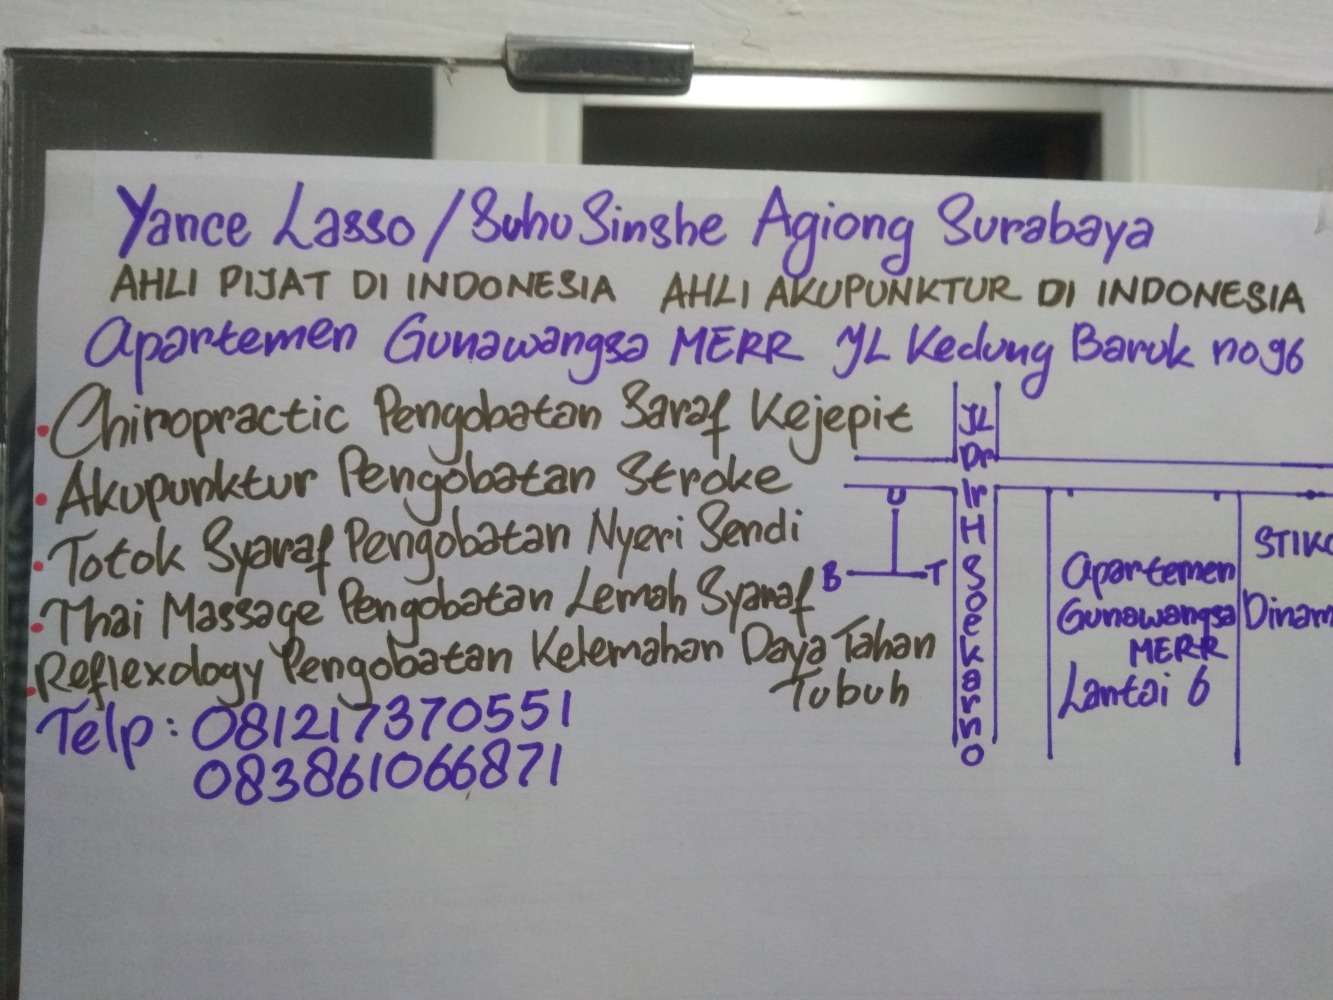 Yance Lasso / Suhu Sinshe Agiong Surabaya
AHLI PIJAT DI INDONESIA AHLI AKUPUNKTUR DI INDONESIA
Apartemen Gunawangsa MERR JL Kedung Baruk no 96
Chiropractic Pengobatan Saraf Kejepit
Akupunktur Pengobatan Stroke
Totok Syaraf Pengobatan Nyeri Sendi
Thai Massage Pengobatan Lemah Syaraf
Reflexology Pengobatan Kelemahan Daya Tahan
Tubuh
Telp : 081217370551
083861066871
JL
Dr
Ir
H
Soekarno
U
B T
Apartemen
Gunawangsa
MERR
Lantai 6
STIKO
Dinam